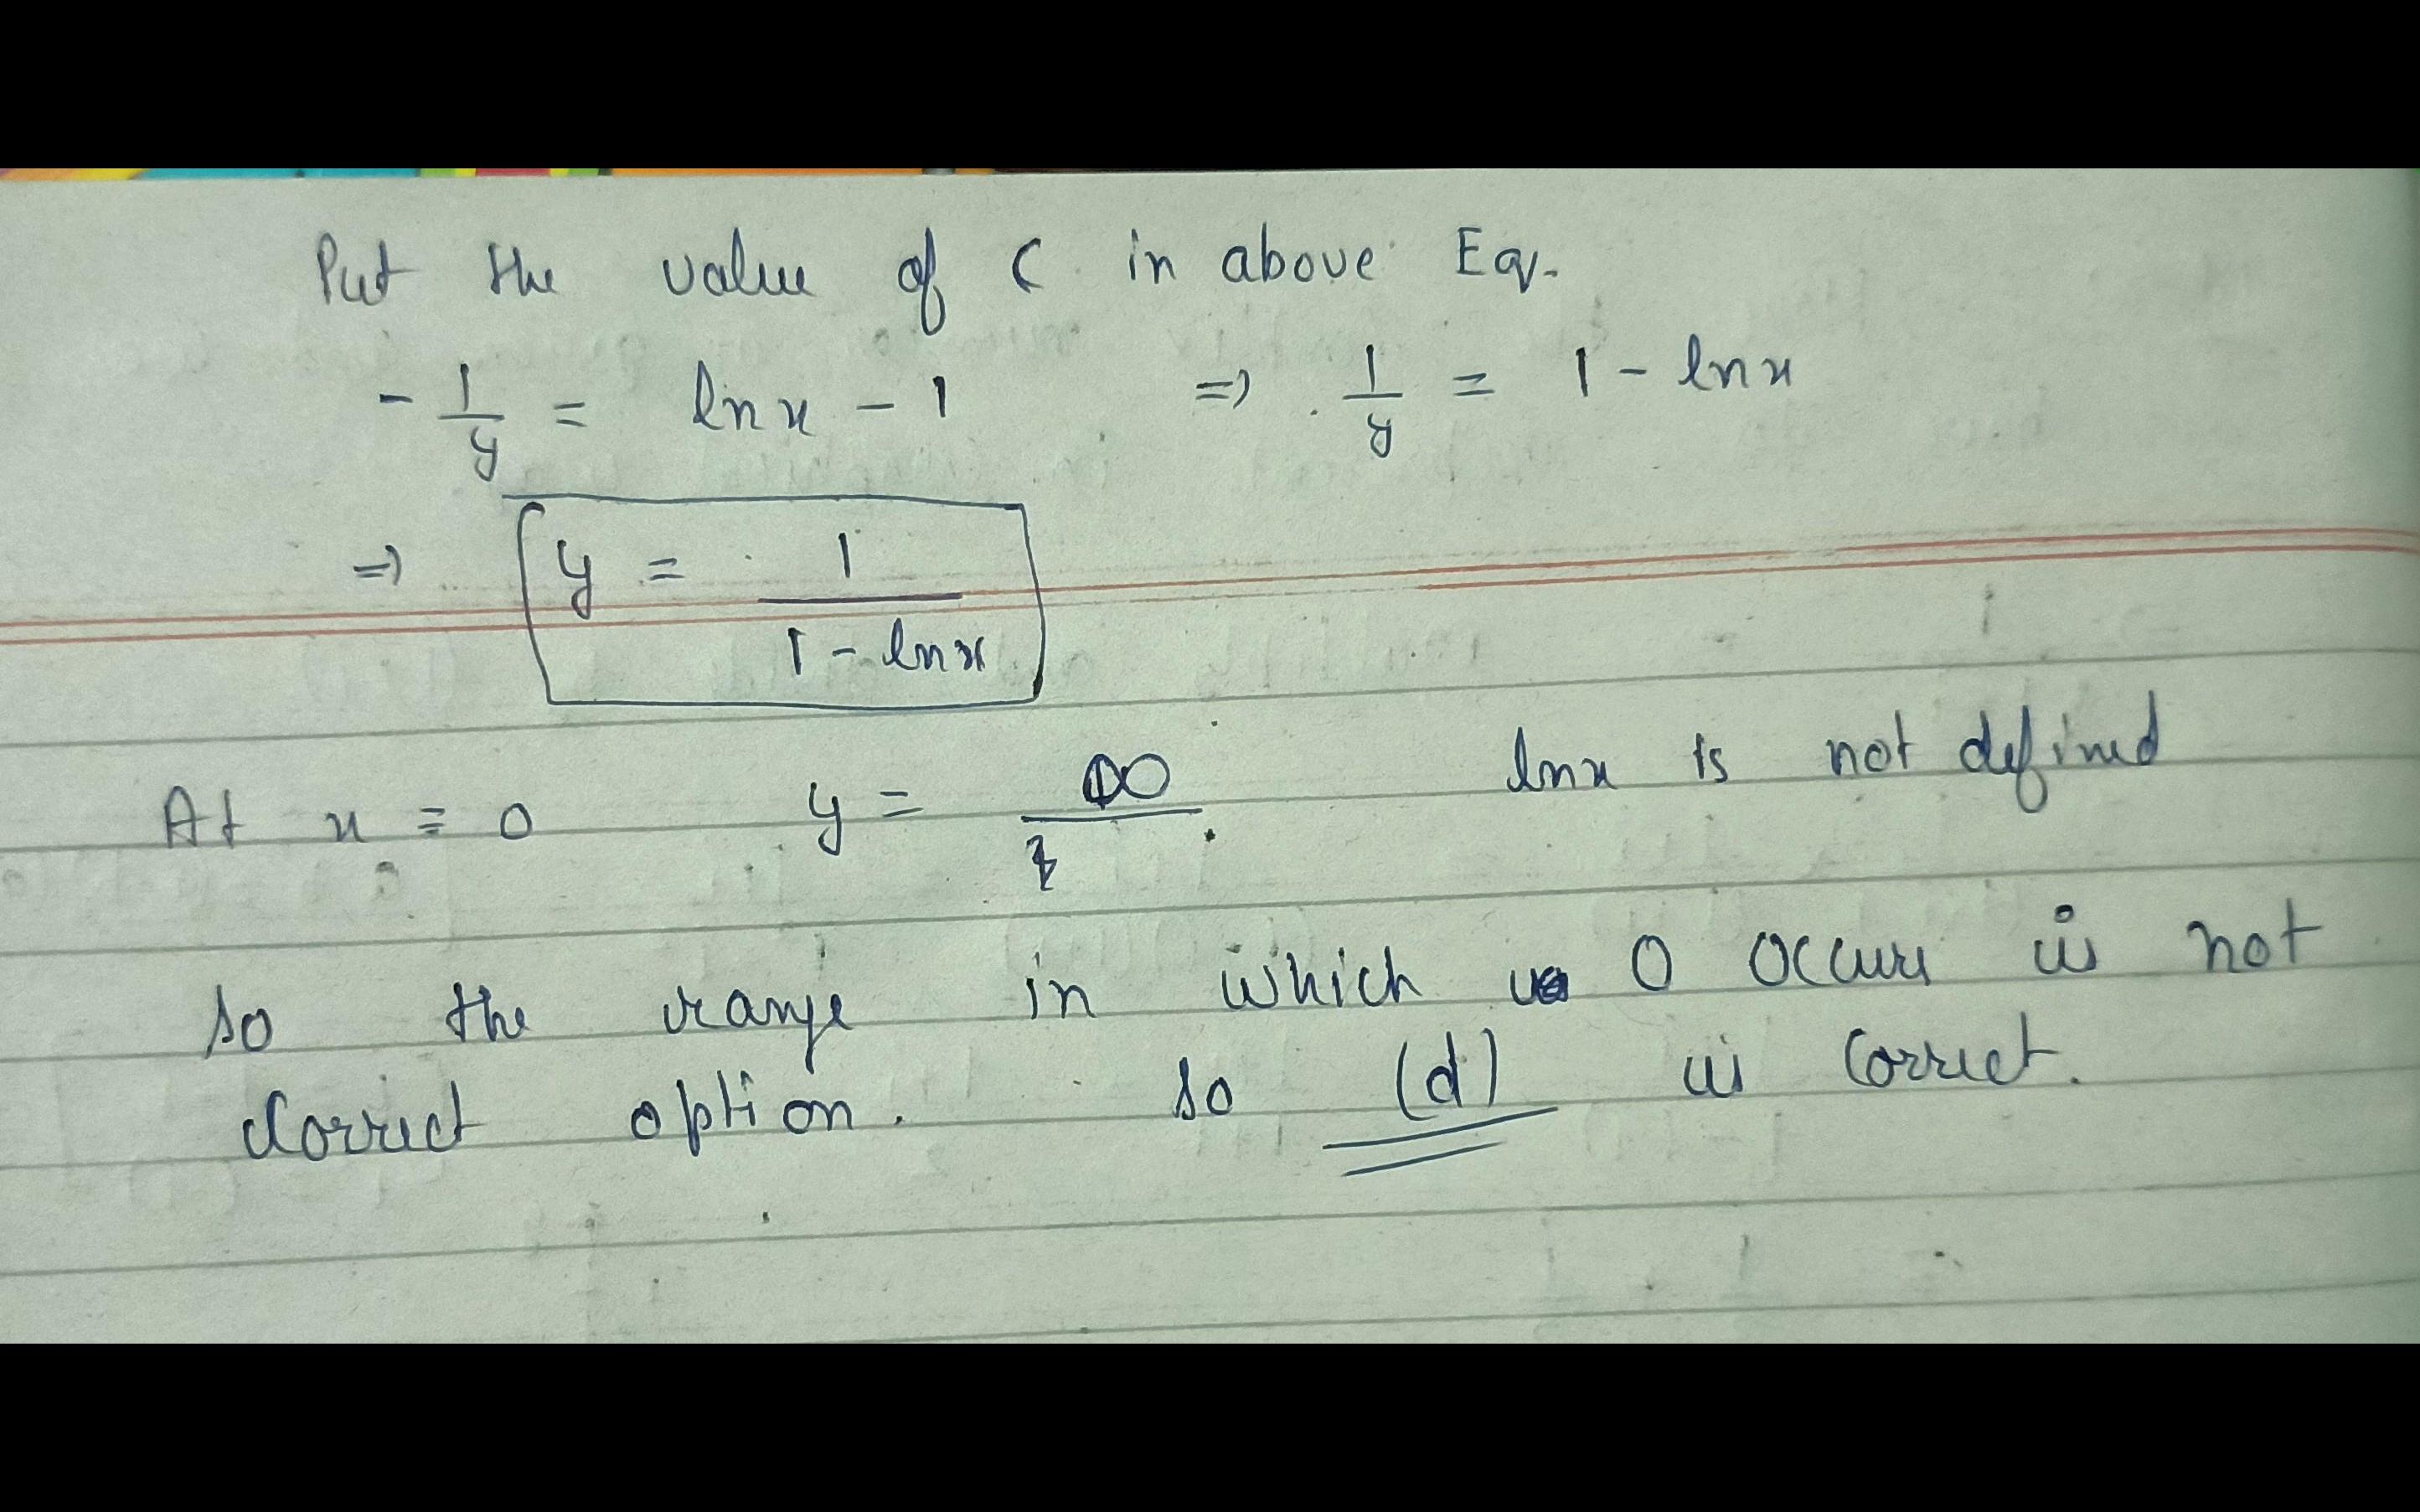 Put the value of C in above Eq.
- 1/y = ln x - 1 => 1/y = 1 - ln x
=> y = 1/(1 - ln x)
At x = 0 y = ∞ ln x is not defined
so the range in which 0 occurs is not
correct option. so (d) is correct.